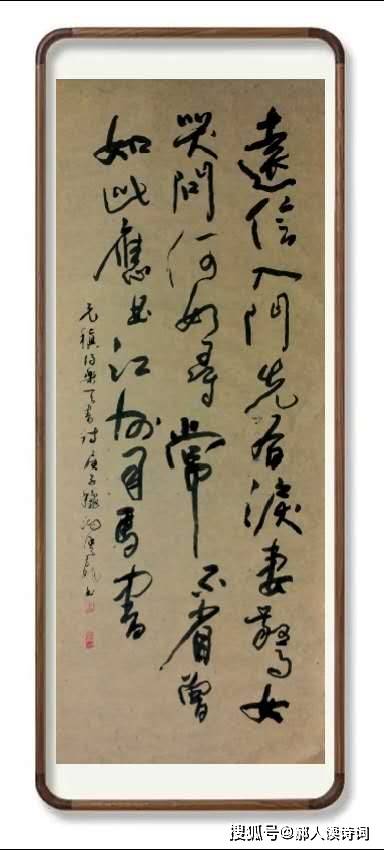 遠信入門先有淚妻驚女
哭問何如尋常不省曾
如此應是江州司馬書
元稹得樂天書詩庚子
搜狐号@郝人读诗词